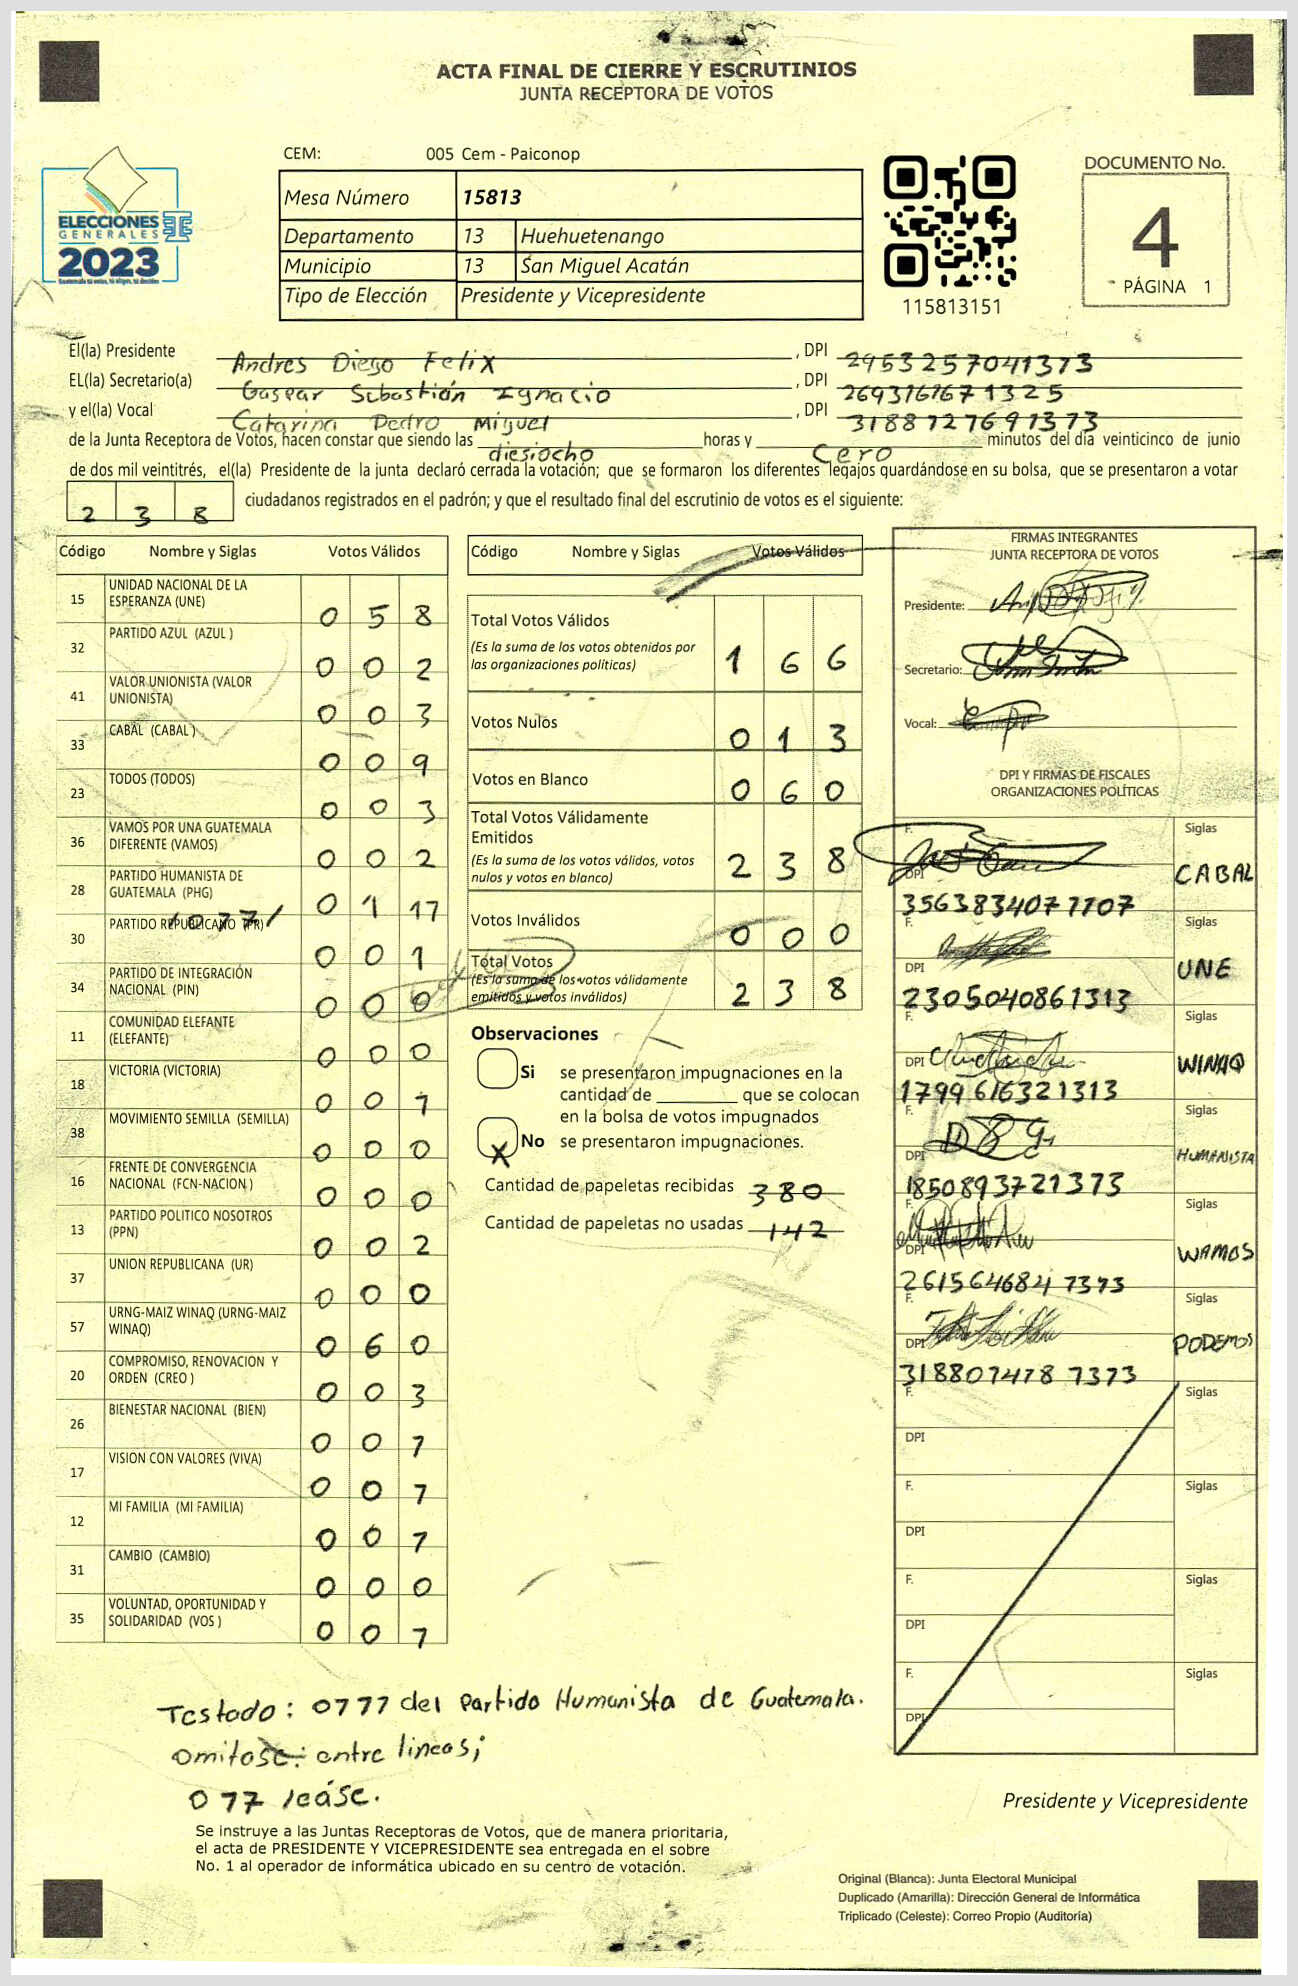 ACTA FINAL DE CIERRE Y ESCRUTINIOS
JUNTA RECEPTORA DE VOTOS
CEM: 005 Cem - Paiconop
ELECCIONES
GENERALES
2023
Mesa Número 15813
Departamento 13 Huehuetenango
Municipio 13 San Miguel Acatán
Tipo de Elección Presidente y Vicepresidente
115813151
DOCUMENTO No.
4
PÁGINA 1
El(la) Presidente Andres Diego Felix , DPI 2953257041373
EL(la) Secretario(a) Gaspar Sebastián Ignacio , DPI 2693761671325
y el(la) Vocal Catarina Pedro Miguel , DPI 3188727691373
de la Junta Receptora de Votos, hacen constar que siendo las diesiocho horas y Cero minutos del día veinticinco de junio
de dos mil veintitrés, el(la) Presidente de la junta declaró cerrada la votación; que se formaron los diferentes legajos guardándose en su bolsa, que se presentaron a votar
2 3 8 ciudadanos registrados en el padrón; y que el resultado final del escrutinio de votos es el siguiente:
Código Nombre y Siglas Votos Válidos
15 UNIDAD NACIONAL DE LA ESPERANZA (UNE) 0 5 8
32 PARTIDO AZUL (AZUL ) 0 0 2
41 VALOR UNIONISTA (VALOR UNIONISTA) 0 0 3
33 CABAL (CABAL ) 0 0 9
23 TODOS (TODOS) 0 0 3
36 VAMOS POR UNA GUATEMALA DIFERENTE (VAMOS) 0 0 2
28 PARTIDO HUMANISTA DE GUATEMALA (PHG) 0 1 17
30 PARTIDO REPUBLICANO (PR) 0 0 1
34 PARTIDO DE INTEGRACIÓN NACIONAL (PIN) 0 0 0
11 COMUNIDAD ELEFANTE (ELEFANTE) 0 0 0
18 VICTORIA (VICTORIA) 0 0 1
38 MOVIMIENTO SEMILLA (SEMILLA) 0 0 0
16 FRENTE DE CONVERGENCIA NACIONAL (FCN-NACION ) 0 0 0
13 PARTIDO POLITICO NOSOTROS (PPN) 0 0 2
37 UNION REPUBLICANA (UR) 0 0 0
57 URNG-MAIZ WINAQ (URNG-MAIZ WINAQ) 0 6 0
20 COMPROMISO, RENOVACION Y ORDEN (CREO ) 0 0 3
26 BIENESTAR NACIONAL (BIEN) 0 0 7
17 VISION CON VALORES (VIVA) 0 0 7
12 MI FAMILIA (MI FAMILIA) 0 0 7
31 CAMBIO (CAMBIO) 0 0 0
35 VOLUNTAD, OPORTUNIDAD Y SOLIDARIDAD (VOS ) 0 0 7
Código Nombre y Siglas Votos Válidos
Total Votos Válidos 1 6 6
(Es la suma de los votos obtenidos por
las organizaciones políticas)
Votos Nulos 0 1 3
Votos en Blanco 0 6 0
Total Votos Válidamente
Emitidos 2 3 8
(Es la suma de los votos válidos, votos
nulos y votos en blanco)
Votos Inválidos 0 0 0
Total Votos 2 3 8
(Es la suma de los votos válidamente
emitidos y votos inválidos)
Observaciones
Si se presentaron impugnaciones en la
cantidad de ________ que se colocan
en la bolsa de votos impugnados
X No se presentaron impugnaciones.
Cantidad de papeletas recibidas 380
Cantidad de papeletas no usadas 142
FIRMAS INTEGRANTES
JUNTA RECEPTORA DE VOTOS
Presidente:
Secretario:
Vocal:
DPI Y FIRMAS DE FISCALES
ORGANIZACIONES POLÍTICAS
F. Siglas CABAL
DPI 3563834077107
Siglas UNE
DPI 2305040861313
F. Siglas WINAQ
DPI 1799616321313
F. Siglas HUMANISTA
DPI 1850893721373
F. Siglas WAMOS
DPI 2615646847373
F. Siglas PODEMOS
DPI 3188074787373
F. Siglas
DPI
F. Siglas
DPI
F. Siglas
DPI
F. Siglas
DPI
Testado: 0777 del Partido Humanista de Guatemala.
Omitase: entre lineas;
077 léase.
Se instruye a las Juntas Receptoras de Votos, que de manera prioritaria,
el acta de PRESIDENTE Y VICEPRESIDENTE sea entregada en el sobre
No. 1 al operador de informática ubicado en su centro de votación.
Presidente y Vicepresidente
Original (Blanca): Junta Electoral Municipal
Duplicado (Amarilla): Dirección General de Informática
Triplicado (Celeste): Correo Propio (Auditoría)